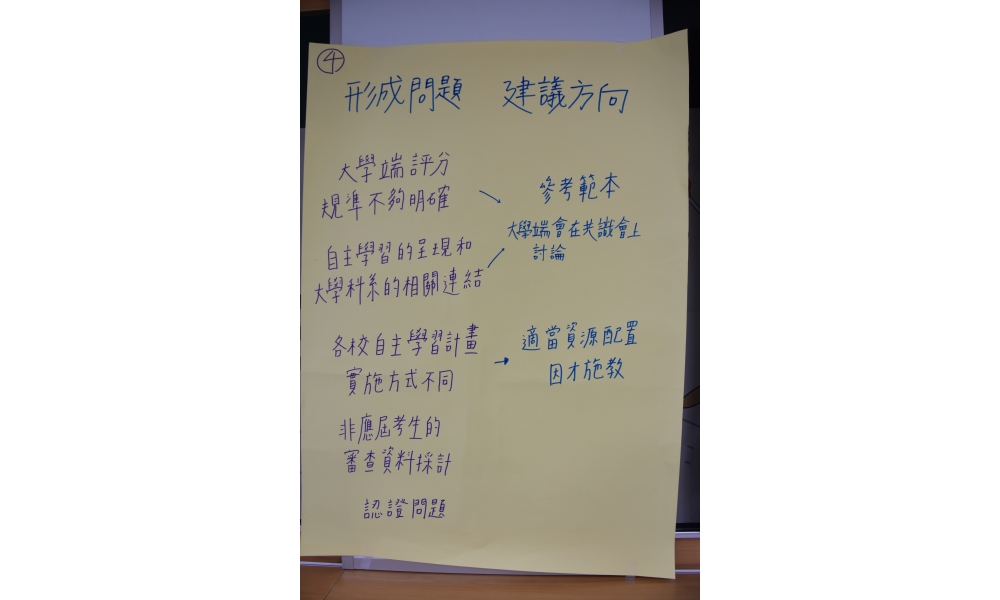 ④
形成問題 建議方向
大學端評分
規準不夠明確
參考範本
大學端會在共識會上
討論
自主學習的呈現和
大學科系的相關連結
各校自主學習計畫
實施方式不同
適當資源配置
因才施教
非應屆考生的
審查資料採計
認證問題